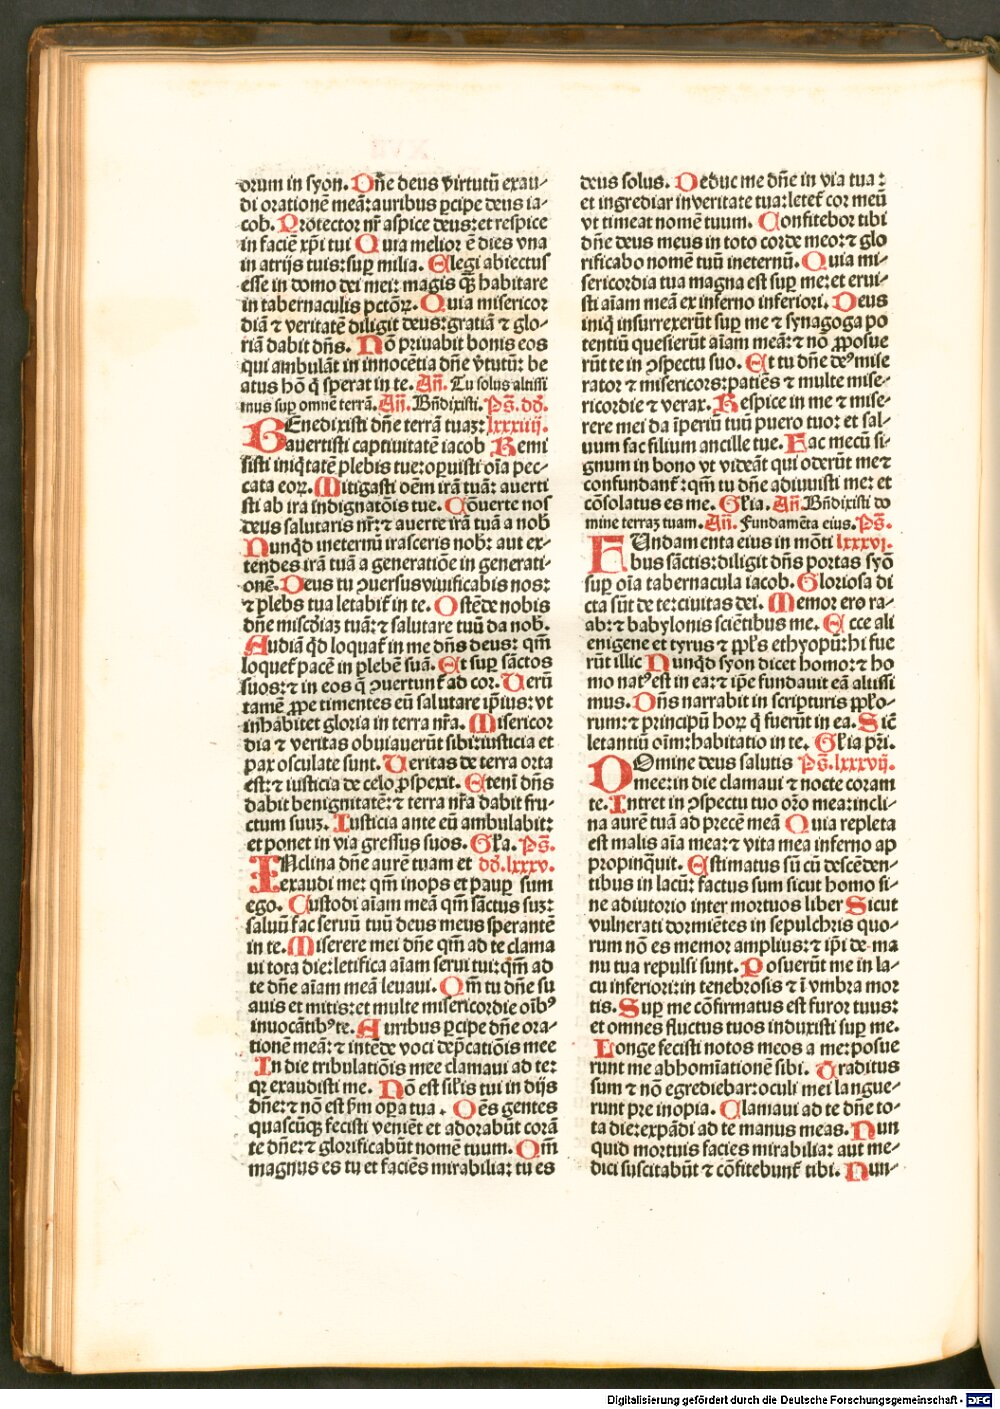 orum in syon. Dñe deus virtutũ exau-
di orationẽ meã: auribus ꝑcipe deus ia-
cob. Protector nr̃ aspice deus: et respice
in faciẽ xp̃i tui Quia melior ẽ dies vna
in atrijs tuis: suꝑ milia. Elegi abiectus
esse in domo dei mei: magis q̃ꝫ habitare
in tabernaculis pctõꝝ. Quia misericor
diã ⁊ veritatẽ diligit deus: gratiã ⁊ glo-
riã dabit dñs. Nõ priuabit bonis eos
qui ambulãt in innocẽtia dñe v̾tutũ: be
atus hõ q̃ sperat in te. Añ. Tu solus altissi
mus suꝑ omnẽ terrã. Añ. Bñdixisti. Ps̃. dd̃.
BEnedixisti dñe terrã tuaꝫ: lxxxiiij.
auertisti captiuitatẽ iacob Remi
sisti iniq̃tatẽ plebis tue: oꝑuisti oĩa pec-
cata eoꝝ. Mitigasti oẽm irã tuã: auerti
sti ab ira indignatõis tue. Cõuerte nos
deus salutaris nr̃: ⁊ auerte irã tuã a nob̃
Nunq̃d ineternũ irasceris nob̃: aut ex-
tendes irã tuã a generatiõe in generati-
onẽ. Deus tu ꝯuersus viuificabis nos:
⁊ plebs tua letabit̃ in te. Ostẽde nobis
dñe miscd̾iaꝫ tuã: ⁊ salutare tuũ da nob̃.
Audiã q̃d loquat̃ in me dñs deus: qm̃
loquet̃ pacẽ in plebẽ suã. Et suꝑ sãctos
suos: ⁊ in eos q̃ ꝯuertunt̃ ad cor. Uerũ
tamẽ ꝓpe timentes eũ salutare ip̃ius: vt
inhabitet gloria in terra nr̃a. Misericor
dia ⁊ veritas obuiauerũt sibi: iusticia et
pax osculate sunt. Ueritas de terra orta
est: ⁊ iusticia de celo ꝓspexit. Etenĩ dñs
dabit benignitatẽ: ⁊ terra nr̃a dabit fru-
ctum suuꝫ. Iusticia ante eũ ambulabit:
et ponet in via gressus suos. Gl̃a. Ps̃.
INclina dñe aurẽ tuam et dd̃. lxxxv.
exaudi me: qm̃ inops et pauꝑ sum
ego. Custodi aĩam meã qm̃ sãctus suꝫ:
saluũ fac seruũ tuũ deus meus sperantẽ
in te. Miserere mei dñe qm̃ ad te clama
ui tota die: letifica aĩam serui tui: qm̃ ad
te dñe aĩam meã leuaui. Qm̃ tu dñe su
auis et mitis: et multe misericordie oĩbꝰ
inuocãtibꝰ te. Auribus ꝑcipe dñe ora-
tionẽ meã: ⁊ intẽde voci dep̃catiõis mee
In die tribulatiõis mee clamaui ad te:
qꝛ exaudisti me. Nõ est sil̃is tui in dijs
dñe: ⁊ nõ est ẜm oꝑa tua. Oẽs gentes
quascũqꝫ fecisti veniẽt et adorabũt corã
te dñe: ⁊ glorificabũt nomẽ tuum. Qm̃
magnus es tu et faciẽs mirabilia: tu es
deus solus. Deduc me dñe in via tua:
et ingrediar in veritate tua: letet̃ cor meũ
vt timeat nomẽ tuum. Confitebor tibi
dñe deus meus in toto corde meo: ⁊ glo
rificabo nomẽ tuũ ineternũ. Quia mi-
sericordia tua magna est suꝑ me: et erui-
sti aĩam meã ex inferno inferiori. Deus
iniq̃ insurrexerũt suꝑ me ⁊ synagoga po
tentiũ quesierũt aĩam meã: ⁊ nõ ꝓposue
rũt te in ꝯspectu suo. Et tu dñe deꝰ mise
rator ⁊ misericors: patiẽs ⁊ multe mise-
ricordie ⁊ verax. Respice in me ⁊ mise-
rere mei da ĩperiũ tuũ puero tuo: et sal-
uum fac filium ancille tue. Fac mecũ si-
gnum in bono vt videãt qui oderũt me ⁊
confundant̃: qm̃ tu dñe adiuuisti me: et
cõsolatus es me. Gl̃ia. Añ. Bñdixisti do
mine terraꝫ tuam. Añ. Fundamẽta eius. Ps̃.
FUndamenta eius in mõti lxxxvi.
bus sãctis: diligit dñs portas syõ
suꝑ oĩa tabernacula iacob. Gloriosa di
cta sũt de te: ciuitas dei. Memor ero ra-
ab: ⁊ babylonis sciẽtibus me. Ecce ali
enigene et tyrus ⁊ ppl̃s ethyopũ: hi fue
rũt illic Nunq̃d syon dicet homo: ⁊ ho
mo natꝰ est in ea: ⁊ ip̃e fundauit eã altissi
mus. Dñs narrabit in scripturis ppl̃o-
rum: ⁊ principũ hoꝝ q̃ fuerũt in ea. Sic̃
letantiũ oĩm: habitatio in te. Gl̃ia pr̃i.
DOmine deus salutis Ps̃. lxxxvij.
mee: in die clamaui ⁊ nocte coram
te. Intret in ꝯspectu tuo or̃o mea: incli-
na aurẽ tuã ad precẽ meã Quia repleta
est malis aĩa mea: ⁊ vita mea inferno ap
propinq̃uit. Estimatus sũ cũ descẽden-
tibus in lacũ: factus sum sicut homo si-
ne adiutorio inter mortuos liber Sicut
vulnerati dormiẽtes in sepulchris quo-
rum nõ es memor amplius: ⁊ ip̃i de ma
nu tua repulsi sunt. Posuerũt me in la-
cu inferiori: in tenebrosis ⁊ ĩ vmbra mor
tis. Suꝑ me cõfirmatus est furor tuus:
et omnes fluctus tuos induxisti suꝑ me.
Longe fecisti notos meos a me: posue
runt me abhomĩationẽ sibi. Traditus
sum ⁊ nõ egrediebar: oculi mei langue-
runt pre inopia. Clamaui ad te dñe to-
ta die: expãdi ad te manus meas. Nun
quid mortuis facies mirabilia: aut me-
dici suscitabũt ⁊ cõfitebunt̃ tibi. Nun-
Digitalisierung gefördert durch die Deutsche Forschungsgemeinschaft - DFG